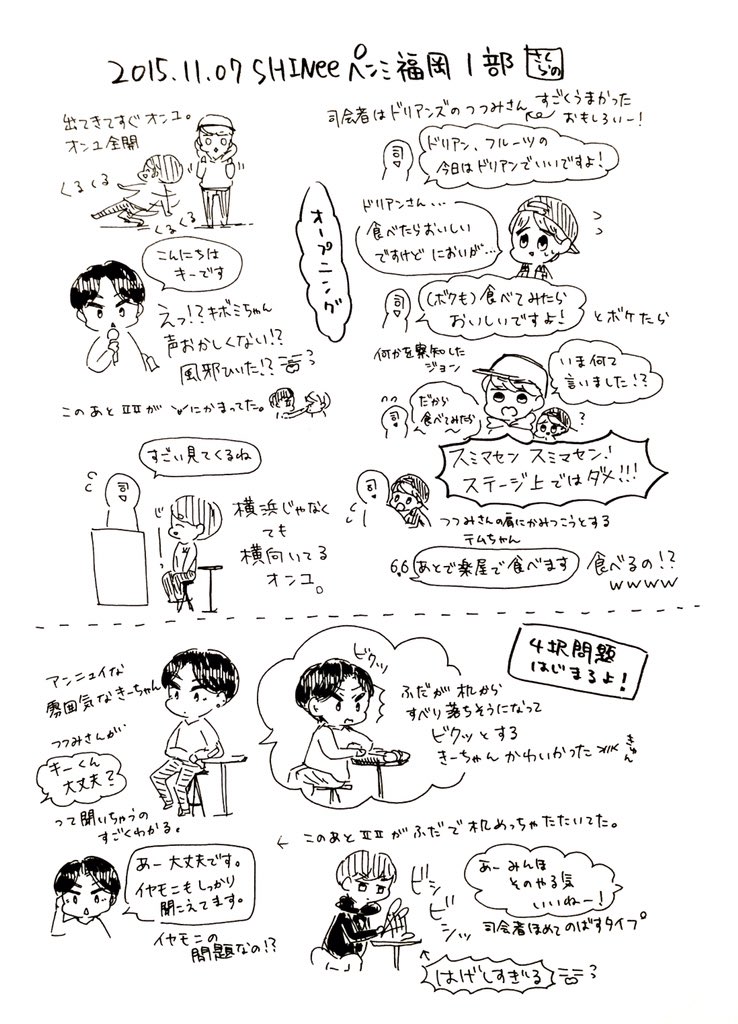 2015.11.07 SHINee ペンミ福岡 1部
さくらの
出てきてすぐオンユ。
オンユ全開
くるくる
くるくる
こんにちは
キーです
えっ!?キボミちゃん
声おかしくない!?
風邪ひいた!?
このあと
にかまってた。
すごい見てくるね
司
横浜じゃなく
ても
横向いてる
オンユ。
オープニング
司会者はドリアンズのつつみさん
すごくうまかった
おもしろいー!
司
ドリアン、フルーツの
今日はドリアンでいいですよ!
ドリアンさん...
食べたらおいしい
ですけど においが...
司
(ボクも)食べてみたら
おいしいですよ!
とボケたら
何かを察知した
ジョン
いま何て
言いました!?
司
だから
食べてみたら〜
スミマセン スミマセン!
ステージ上ではダメ!!!
司
つつみさんの肩にかみつこうとする
テムちゃん
あとで楽屋で食べます
食べるの!?
wwww
4択問題
はじまるよ!
アンニュイな
雰囲気なきーちゃん
つつみさんが
キーくん
大丈夫?
って聞いちゃうの
すごくわかる。
ビクッ
ふだが机から
すべり落ちそうになって
ビクッとする
きーちゃんかわいかった
きゅん
← このあと
がふだで机めっちゃたたいてた。
あー 大丈夫です。
イヤモニもしっかり
聞こえてます。
イヤモニの
問題なの!?
ビシ
ビシッ
あー みんな
そのやる気
いいねー!
司会者ほめてのばすタイプ。
はげしすぎる